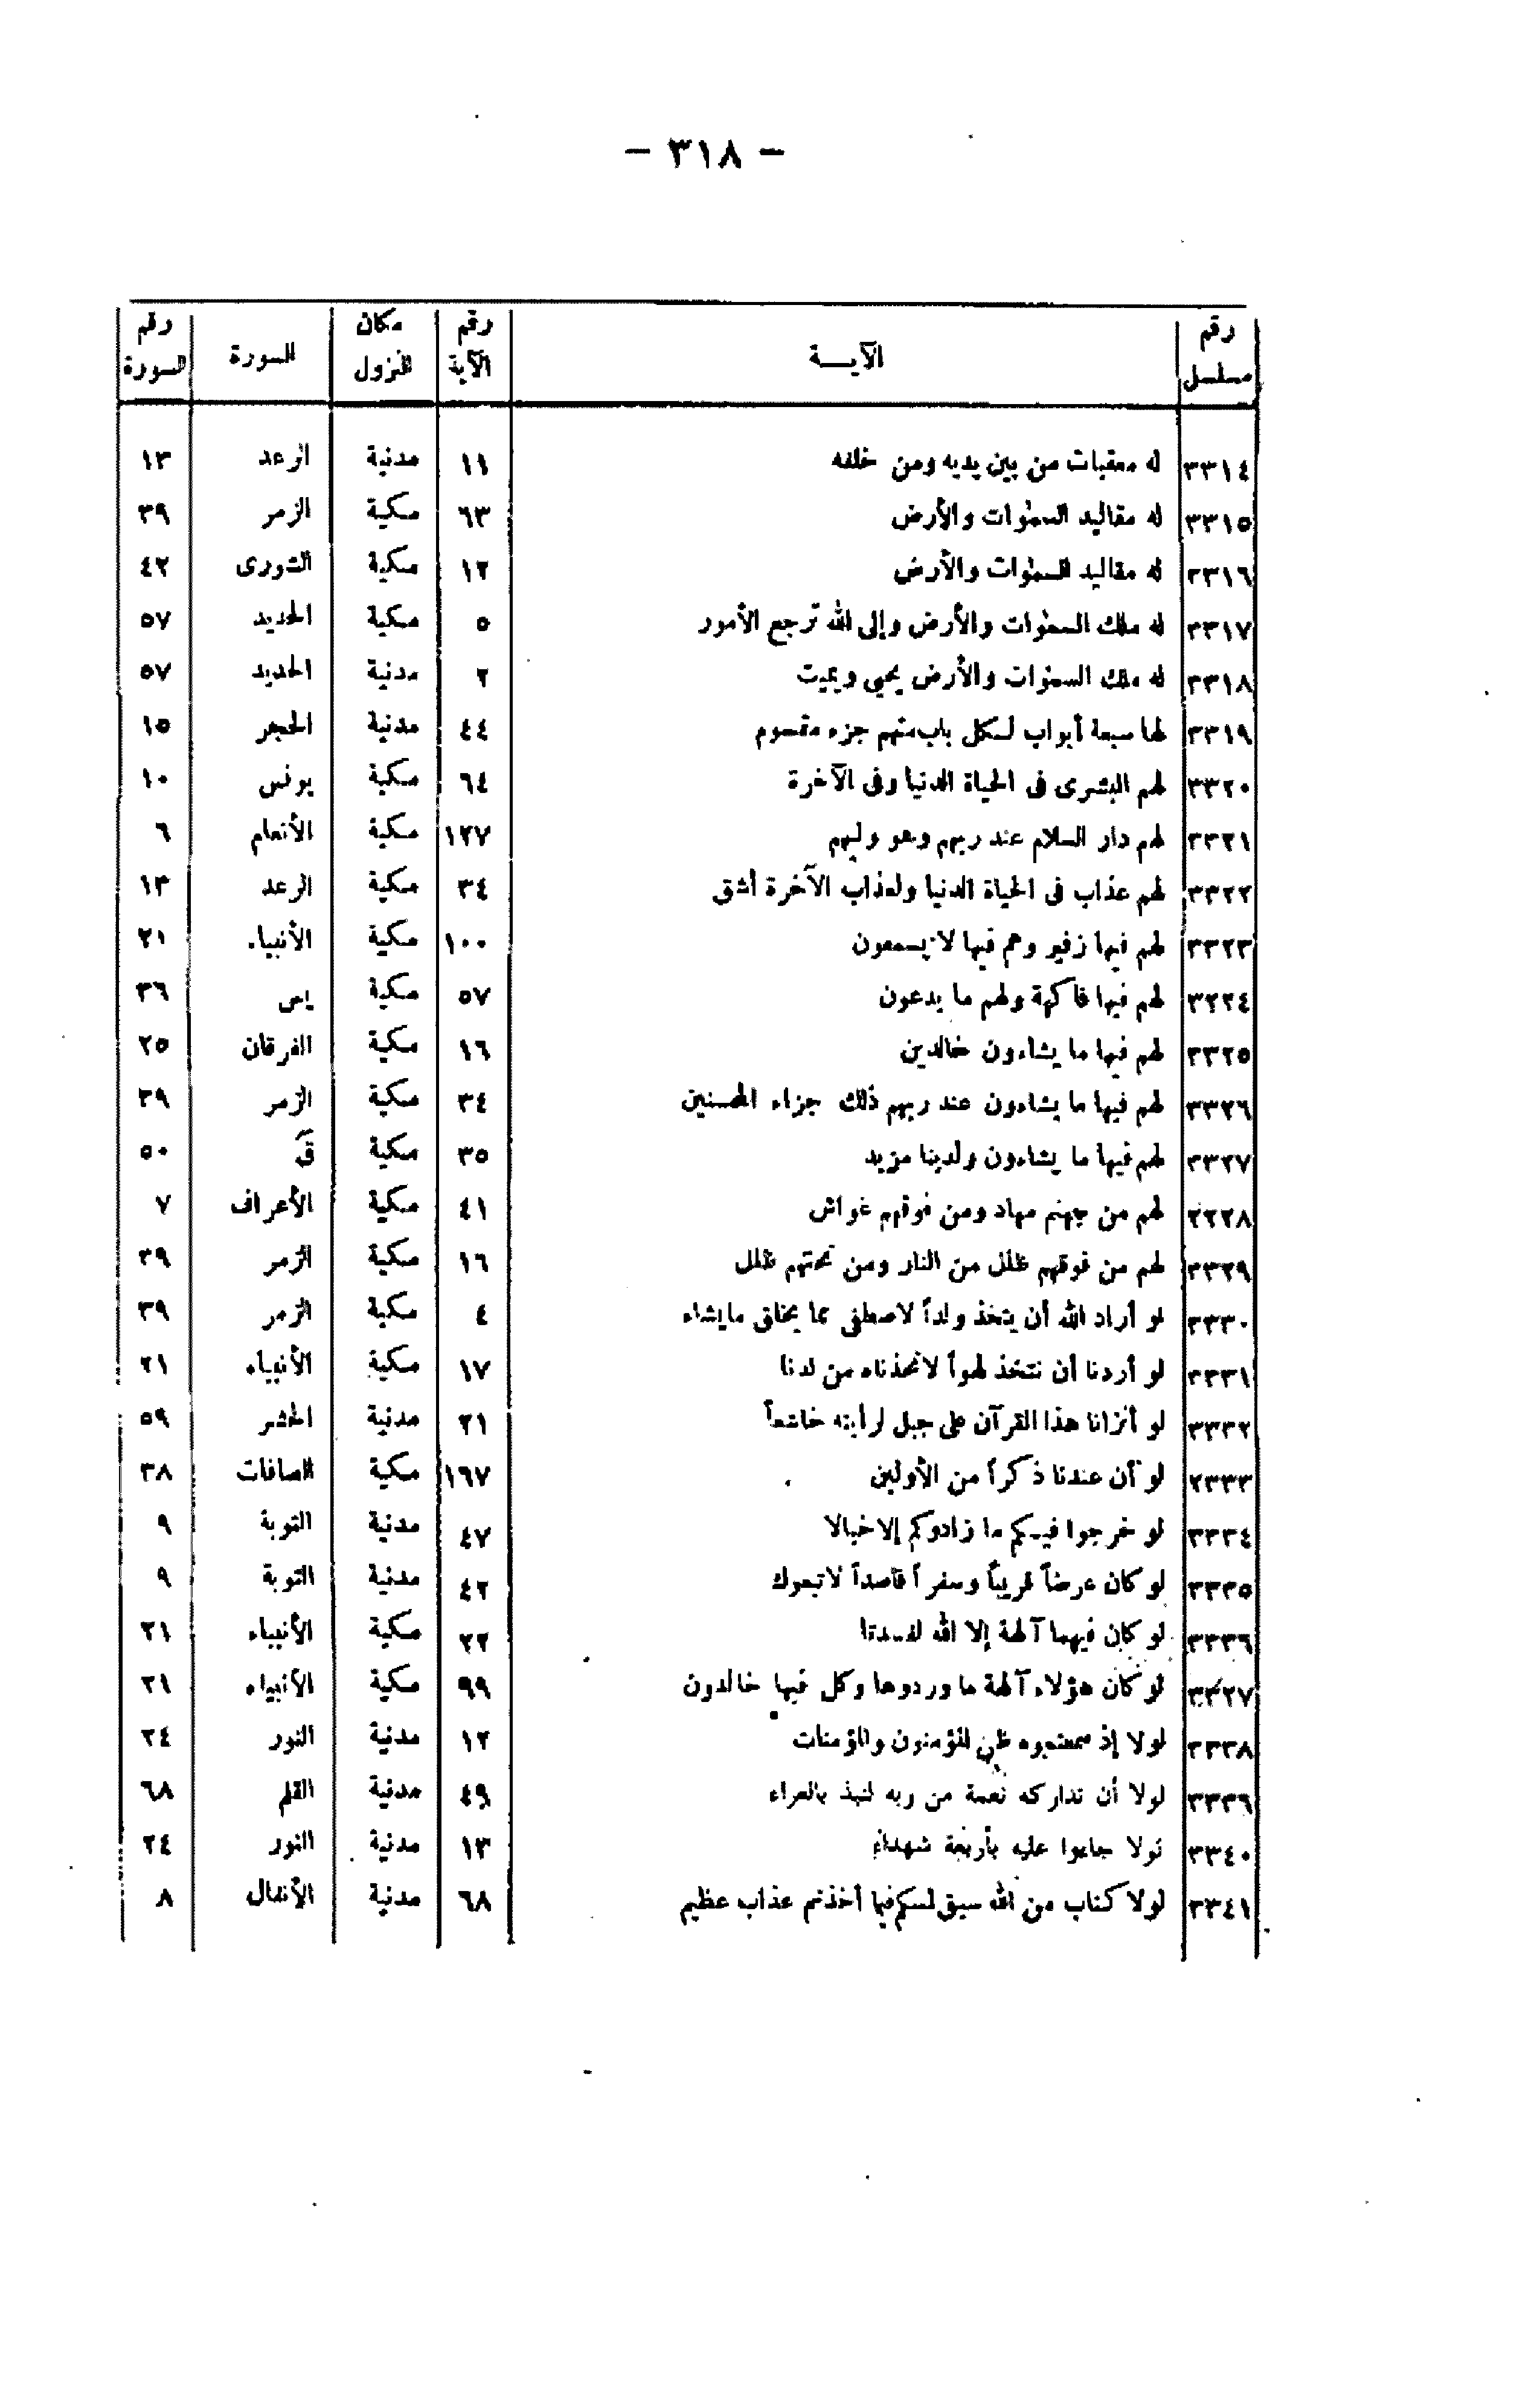 — ٣١٨ —
رقم مسلسل | الآيـــة | رقم الآية | مكان النزول | السورة | رقم السورة
٣٣١٤ | له معقبات من بين يديه ومن خلفه | ١١ | مدنية | الرعد | ١٣
٣٣١٥ | له مقاليد السموات والأرض | ٦٣ | مكية | الزمر | ٣٩
٣٣١٦ | له مقاليد السموات والأرض | ١٢ | مكية | الشورى | ٤٢
٣٣١٧ | له ملك السموات والأرض وإلى الله ترجع الأمور | ٥ | مكية | الحديد | ٥٧
٣٣١٨ | له ملك السموات والأرض يحيى ويميت | ٢ | مدنية | الحديد | ٥٧
٣٣١٩ | لها سبعة أبواب لكل باب منهم جزء مقسوم | ٤٤ | مدنية | الحجر | ١٥
٣٣٢٠ | لهم البشرى فى الحياة الدنيا وفى الآخرة | ٦٤ | مكية | يونس | ١٠
٣٣٢١ | لهم دار السلام عند ربهم وهو وليهم | ١٢٧ | مكية | الأنعام | ٦
٣٣٢٢ | لهم عذاب فى الحياة الدنيا ولعذاب الآخرة أشق | ٣٤ | مكية | الرعد | ١٣
٣٣٢٣ | لهم فيها زفير وهم فيها لا يسمعون | ١٠٠ | مكية | الأنبياء | ٢١
٣٣٢٤ | لهم فيها فاكهة ولهم ما يدعون | ٥٧ | مكية | يس | ٣٦
٣٣٢٥ | لهم فيها ما يشاءون خالدين | ١٦ | مكية | الفرقان | ٢٥
٣٣٢٦ | لهم فيها ما يشاءون عند ربهم ذلك جزاء المحسنين | ٣٤ | مكية | الزمر | ٣٩
٣٣٢٧ | لهم فيها ما يشاءون ولدينا مزيد | ٣٥ | مكية | قَ | ٥٠
٣٣٢٨ | لهم من جهنم مهاد ومن فوقهم غواش | ٤١ | مكية | الأعراف | ٧
٣٣٢٩ | لهم من فوقهم ظلل من النار ومن تحتهم ظلل | ١٦ | مكية | الزمر | ٣٩
٣٣٣٠ | لو أراد الله أن يتخذ ولداً لاصطفى مما يخلق مايشاء | ٤ | مكية | الزمر | ٣٩
٣٣٣١ | لو أردنا أن نتخذ لهواً لاتخذناه من لدنا | ١٧ | مكية | الأنبياء | ٢١
٣٣٣٢ | لو أنزلنا هذا القرآن على جبل لرأيته خاشعاً | ٢١ | مدنية | الحشر | ٥٩
٣٣٣٣ | لو أن عندنا ذكراً من الأولين | ١٦٧ | مكية | الصافات | ٣٨
٣٣٣٤ | لو خرجوا فيكم ما زادوكم إلا خبالا | ٤٧ | مدنية | التوبة | ٩
٣٣٣٥ | لو كان عرضاً قريباً وسفراً قاصداً لاتبعوك | ٤٢ | مدنية | التوبة | ٩
٣٣٣٦ | لو كان فيهما آلهة إلا الله لفسدتا | ٢٢ | مكية | الأنبياء | ٢١
٣٣٣٧ | لو كان هؤلاء آلهة ما وردوها وكل فيها خالدون | ٩٩ | مكية | الأنبياء | ٢١
٣٣٣٨ | لولا إذ سمعتموه ظن المؤمنون والمؤمنات | ١٢ | مدنية | النور | ٢٤
٣٣٣٩ | لولا أن تداركه نعمة من ربه لنبذ بالعراء | ٤٩ | مدنية | القلم | ٦٨
٣٣٤٠ | لولا جاءوا عليه بأربعة شهداء | ١٣ | مدنية | النور | ٢٤
٣٣٤١ | لولا كتاب من الله سبق لمسكم فيما أخذتم عذاب عظيم | ٦٨ | مدنية | الأنفال | ٨